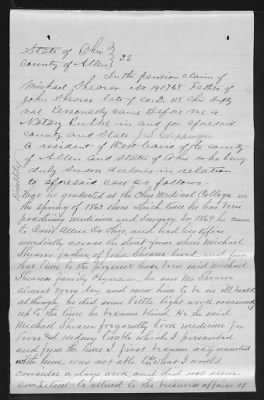 State of Ohio }
County of Allen } SS
In the pension claim of
Michael Shearer No 140768 Father of
John Shearer late of Co. D. 118 Ohio Inft
Vol Personally came Before me a
Notary Public in and for aforesaid
county and State J S
A resident of West Cairo of the county
of Allen and State of Ohio who being
duly Sworn declares in relation
to aforesaid case as follows
that he graduated at the Ohio Medical College in
the Spring of 1863 since which time he has been
practicing medicine and Surgery. In 1865 he came
to Allen Co Ohio, and had his office
across the street from where Michael
Shearer father of John Shearer lived and from
that time to the present has been said Michael
Shearer family Physician he saw Mr Shearer
almost every day and knew him to be in ill health
although he did some little light work occasionally
up to the time he became blind. He the said
Michael Shearer frequently took medicine for
liver & kidney trouble which I prescribed
and from the time I first became acquainted
with him was not able to do what I would
consider a days work and did not seem
competent to attend to the business affairs of